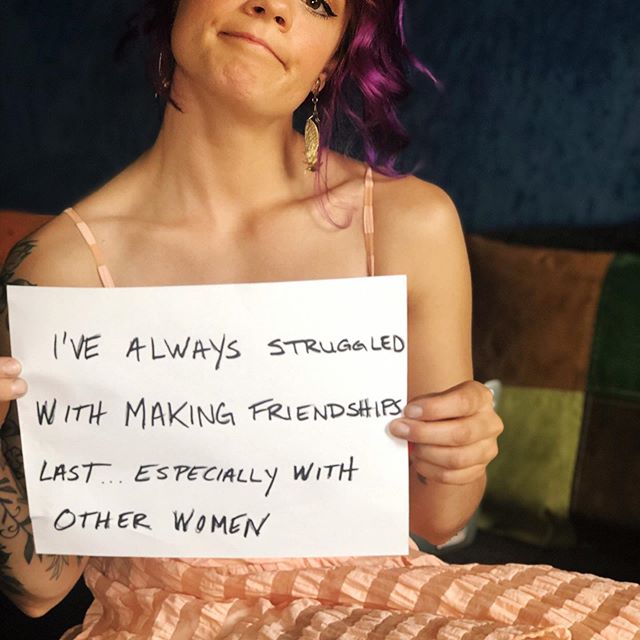 I'VE ALWAYS STRUGGLED
WITH MAKING FRIENDSHIPS
LAST... ESPECIALLY WITH
OTHER WOMEN